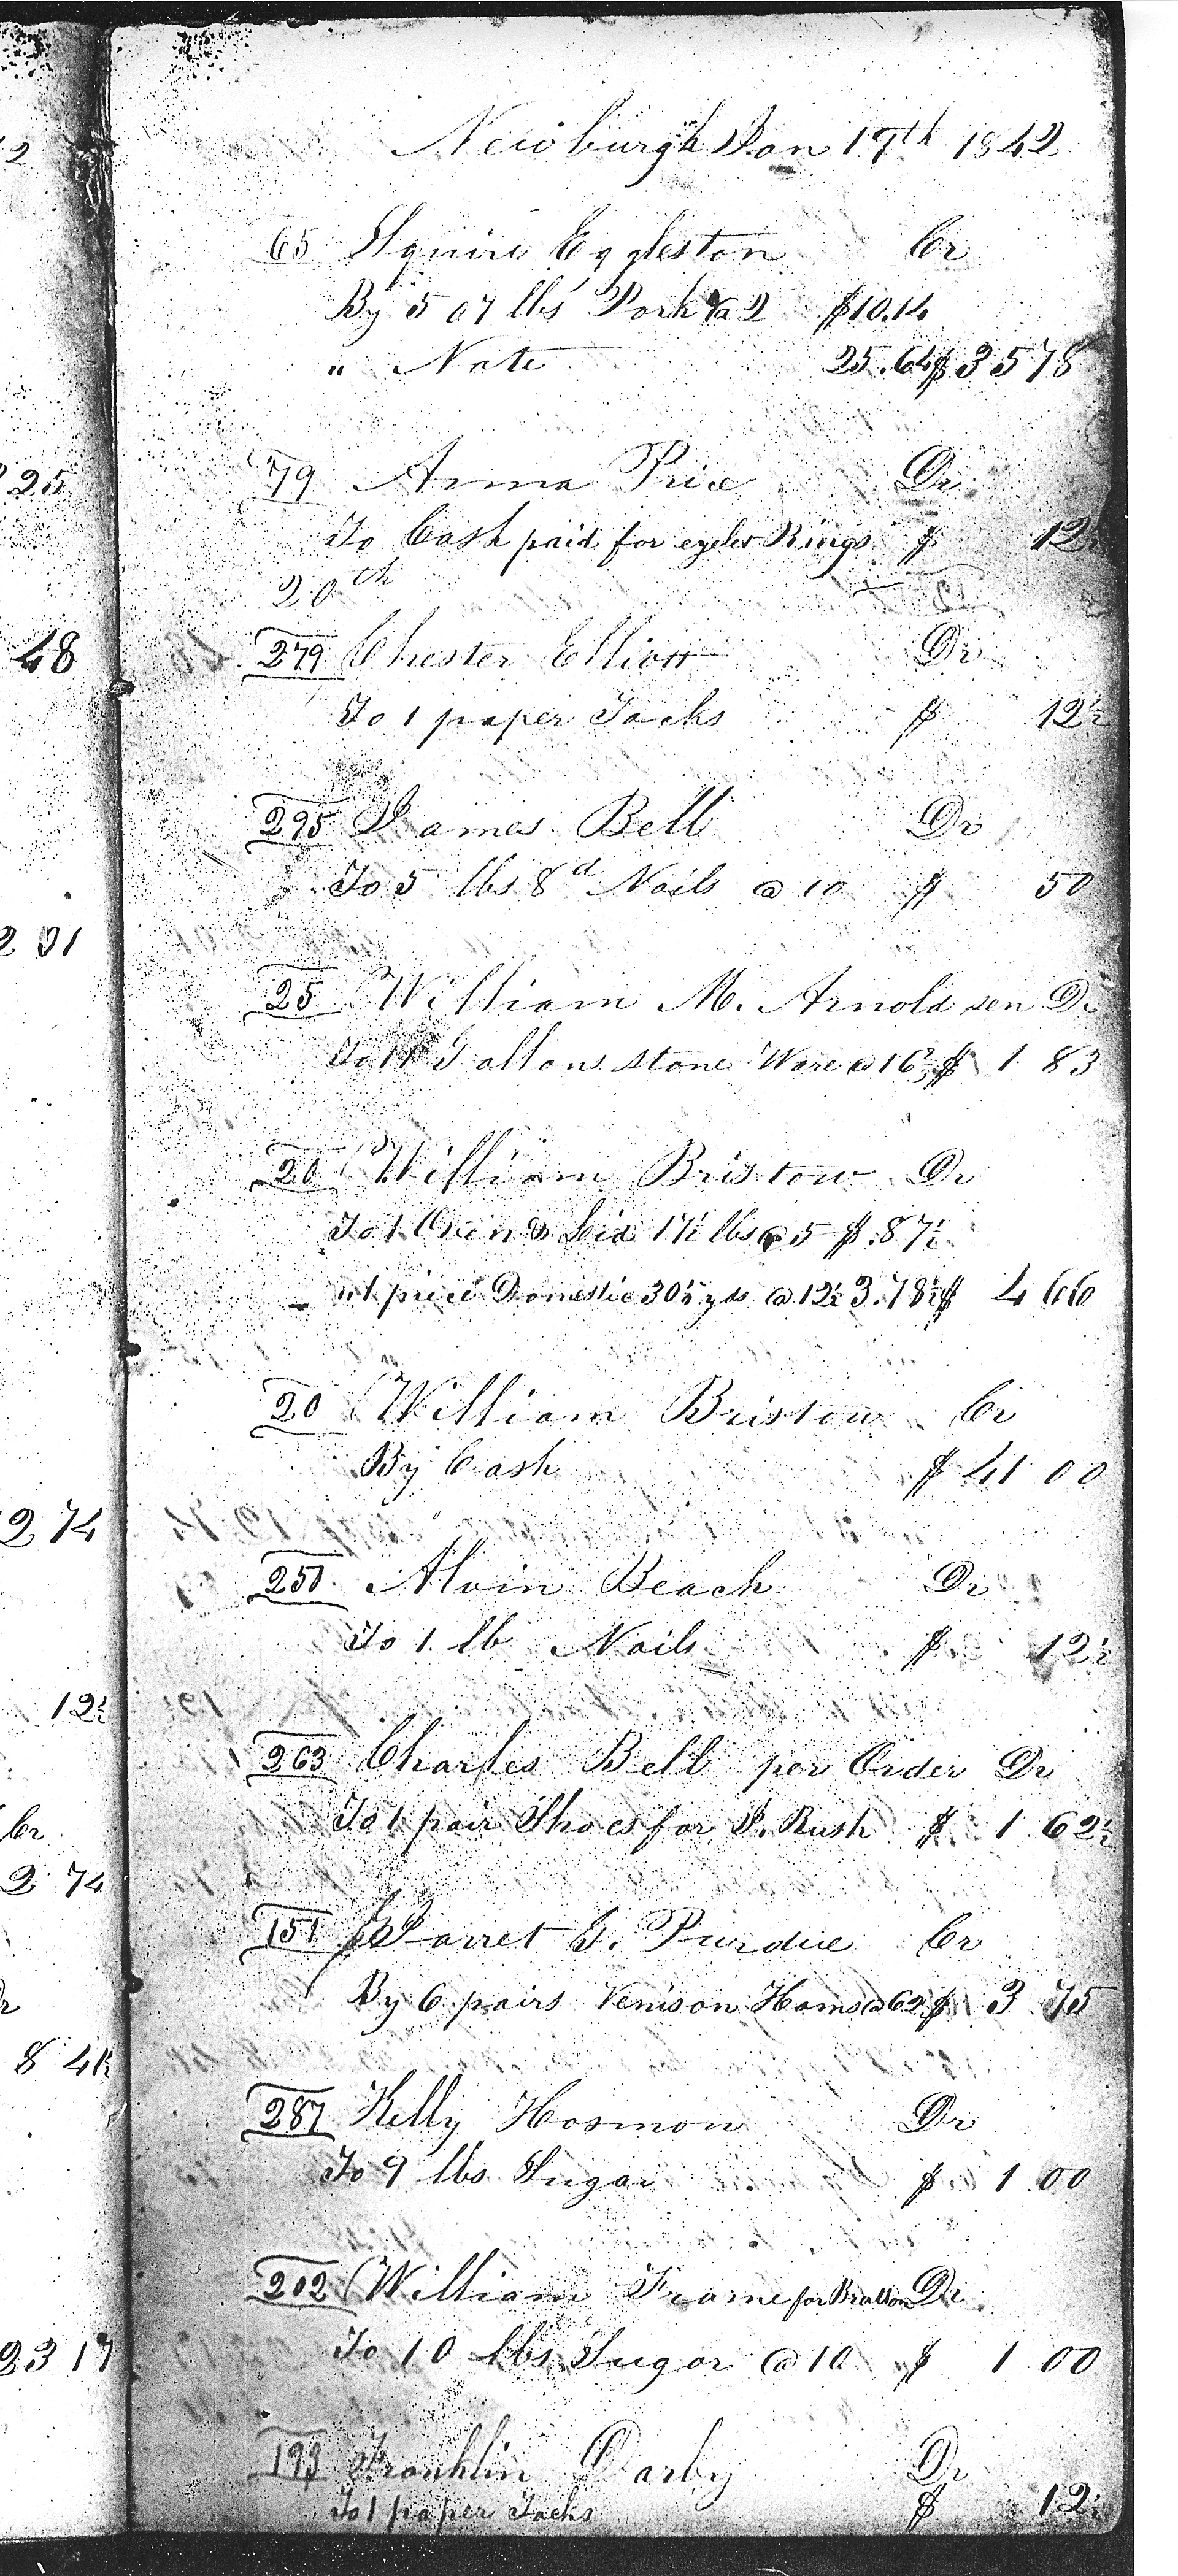 Newburgh Jan 19th 1842
65 Squire Eggleston Cr
By 507 lbs Pork @ 2 $10.14
" Note 25.64 $ 35 78
79 Anna Price Dr
To Cash paid for eyelet Rings $ 12½
20th
279 Chester Elliott Dr
To 1 paper Tacks $ 12½
295 James Bell Dr
To 5 lbs 8d Nails @ 10 $ 50
25 William M. Arnold sen Dr
To 11 Gallons stone Ware @ 16⅔ $ 1 83
20 William Bristow Dr
To 1 Oven & Lid 17½ lbs @ 5 $.87½
" 1 piece Domestic 30¼ yds @ 12½ 3.78½ $ 4 66
20 William Bristow Cr
By Cash $ 41 00
251 Alvin Beach Dr
To 1 lb Nails $ 12½
263 Charles Bell per Order Dr
To 1 pair Shoes for J. Rush $ 1 62½
151 Jarret G. Purdue Cr
By 6 pairs Venison Hams @ 62½ $ 3 75
287 Kelly Hosmon Dr
To 9 lbs Sugar $ 1 00
202 William Frame for Bratton Dr
To 10 lbs Sugar @ 10 $ 1 00
193 Franklin Darby Dr
To 1 paper Tacks $ 12½
25
48
2 01
2 74
12½
Cr
2 74
8 41½
23 17